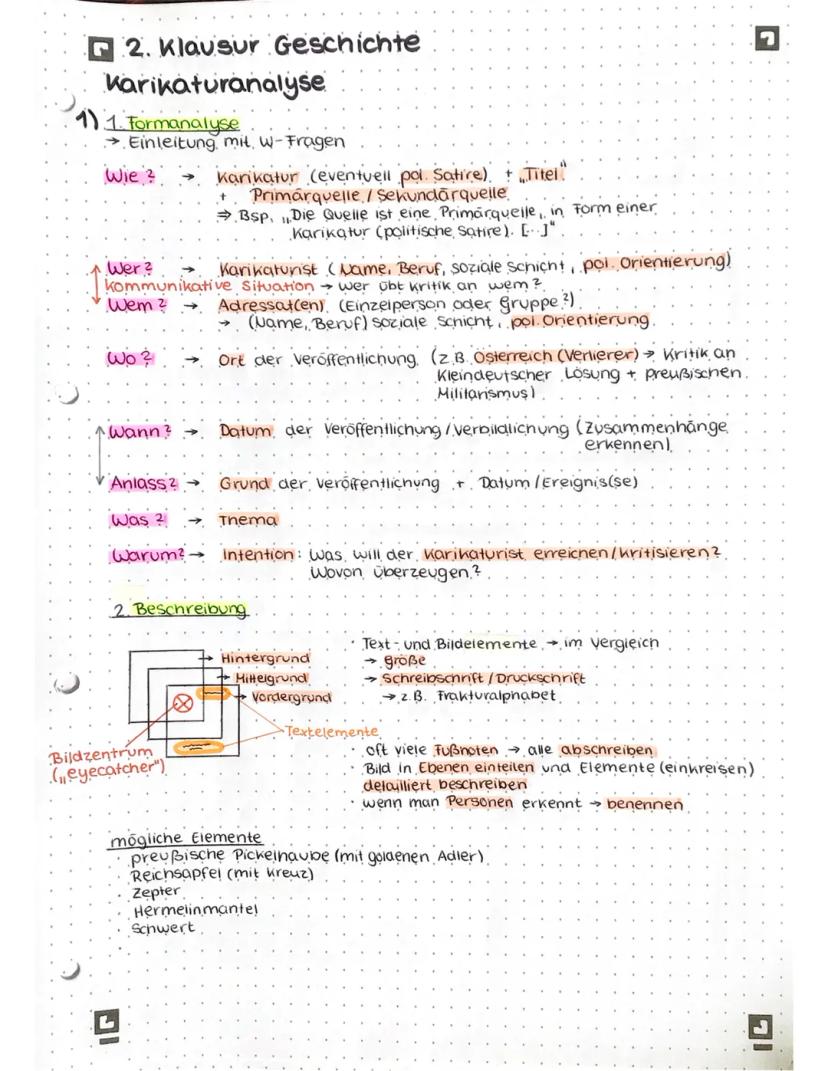 2. Klausur Geschichte
Karikaturanalyse
1) 1. Formanalyse
→ Einleitung mit W-Fragen
Wie? → Karikatur (eventuell pol. Satire) + „Titel"
+ Primärquelle / Sekundärquelle
⇒ Bsp. „Die Quelle ist eine Primärquelle, in Form einer
Karikatur (politische Satire). [...]"
Wer? → Karikaturist (Name, Beruf, soziale Schicht, pol. Orientierung)
Kommunikative Situation → wer übt Kritik an wem?
Wem? → Adressat(en) (Einzelperson oder Gruppe?)
→ (Name, Beruf) soziale Schicht, pol. Orientierung
Wo? → Ort der Veröffentlichung (z.B. Österreich (Verlierer) → Kritik an
Kleindeutscher Lösung + preußischen
Militarismus)
Wann? → Datum der Veröffentlichung / Verbildlichung (Zusammenhänge
erkennen)
Anlass? → Grund der Veröffentlichung + Datum / Ereignis(se)
Was? → Thema
Warum? → Intention: Was will der Karikaturist erreichen / kritisieren?
Wovon überzeugen?
2. Beschreibung
→ Hintergrund
→ Mittelgrund
→ Vordergrund
Textelemente
Bildzentrum
(„eyecatcher")
· Text- und Bildelemente → im Vergleich
→ größe
→ Schreibschrift / Druckschrift
→ z.B. Frakturalphabet
· oft viele Fußnoten → alle abschreiben
· Bild in Ebenen einteilen und Elemente (einkreisen)
detailliert beschreiben
· wenn man Personen erkennt → benennen
mögliche Elemente
· preußische Pickelhaube (mit goldenen Adler)
· Reichsapfel (mit Kreuz)
· Zepter
· Hermelinmantel
· Schwert